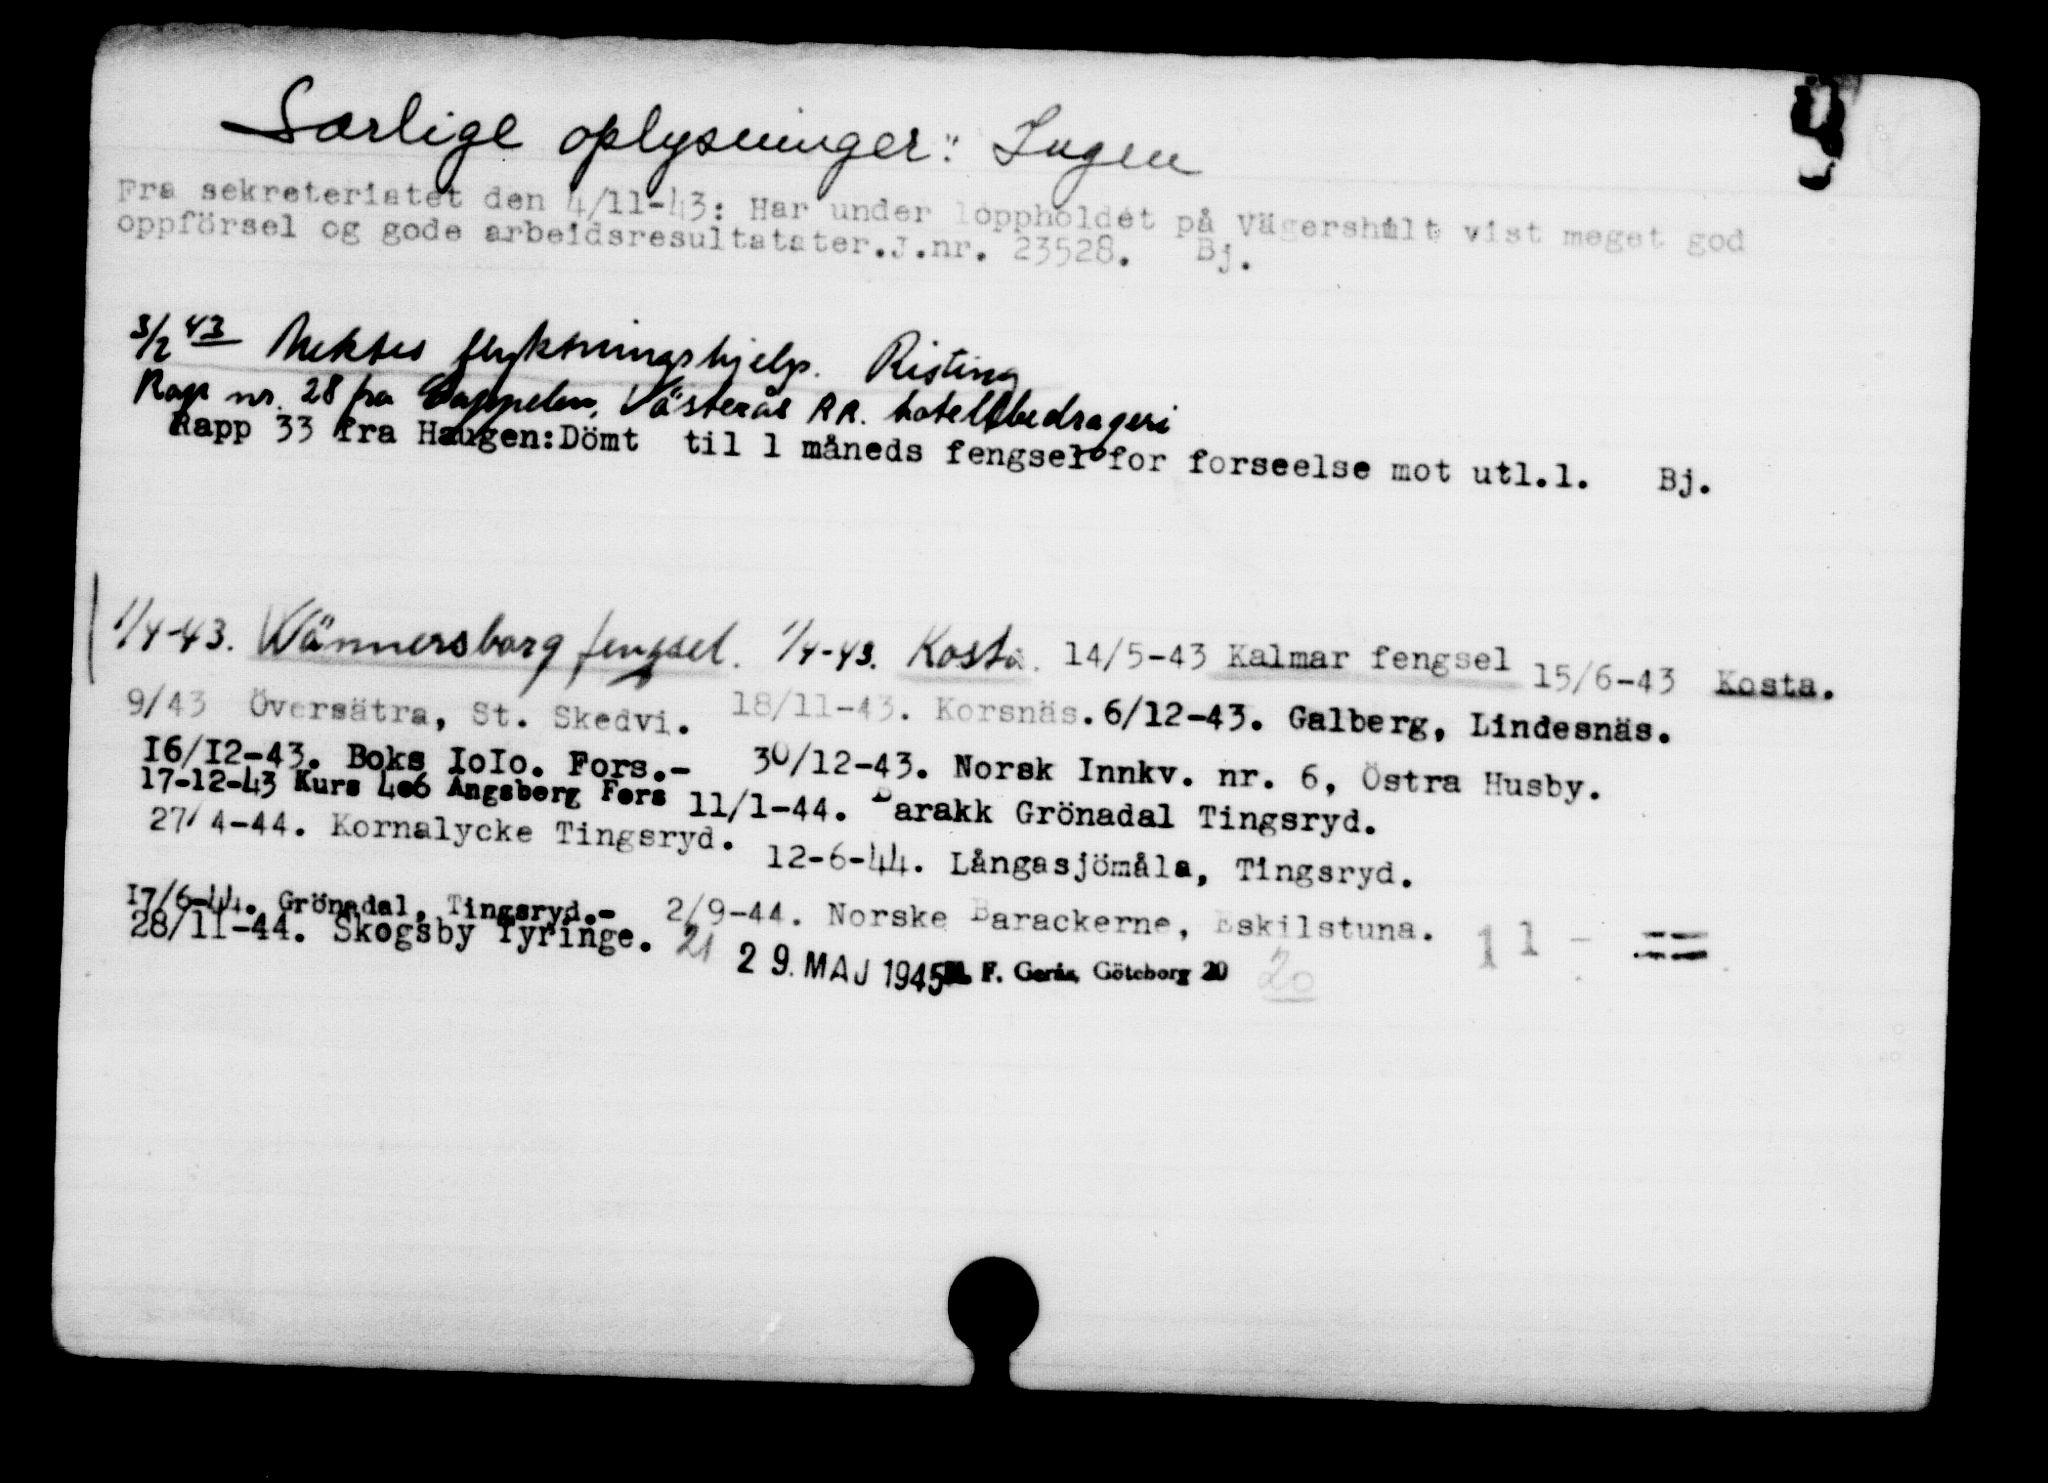 Særlige oplysninger: Ingen
Fra sekreteriatet den 4/11-43: Har under oppholdet på Vägershult vist meget god
oppförsel og gode arbeidsresultatater. J.nr. 23528. Bj.
3/2 43 Nektes flyktningshjelp. Risting
Rap nr. 28 fra Cappelen, Västerås RR. hotellbedrageri
Rapp 33 fra Haugen: Dömt til 1 måneds fengsel for forseelse mot utl.l. Bj.
1/4-43. Wännersborg fengsel. 1/4-43. Kosta. 14/5-43 Kalmar fengsel 15/6-43 Kosta.
9/43 Översätra, St. Skedvi. 18/11-43. Korsnäs. 6/12-43. Galberg, Lindesnäs.
I6/I2-43. Boks IoIo. Fors.- 30/12-43. Norsk Innkv. nr. 6, Östra Husby.
17-12-43 Kurs 406 Ängsberg Fors 11/1-44. Barakk Grönadal Tingsryd.
27/4-44. Kornalycke Tingsryd. 12-6-44. Långasjömåla, Tingsryd.
I7/6-44. Grönadal, Tingsryd.- 2/9-44. Norske Barackerne, Eskilstuna. 1 1 - ==
28/11-44. Skogsby Tyringe. 21 29. MAJ 1945 F. Gerås, Göteborg 20 20